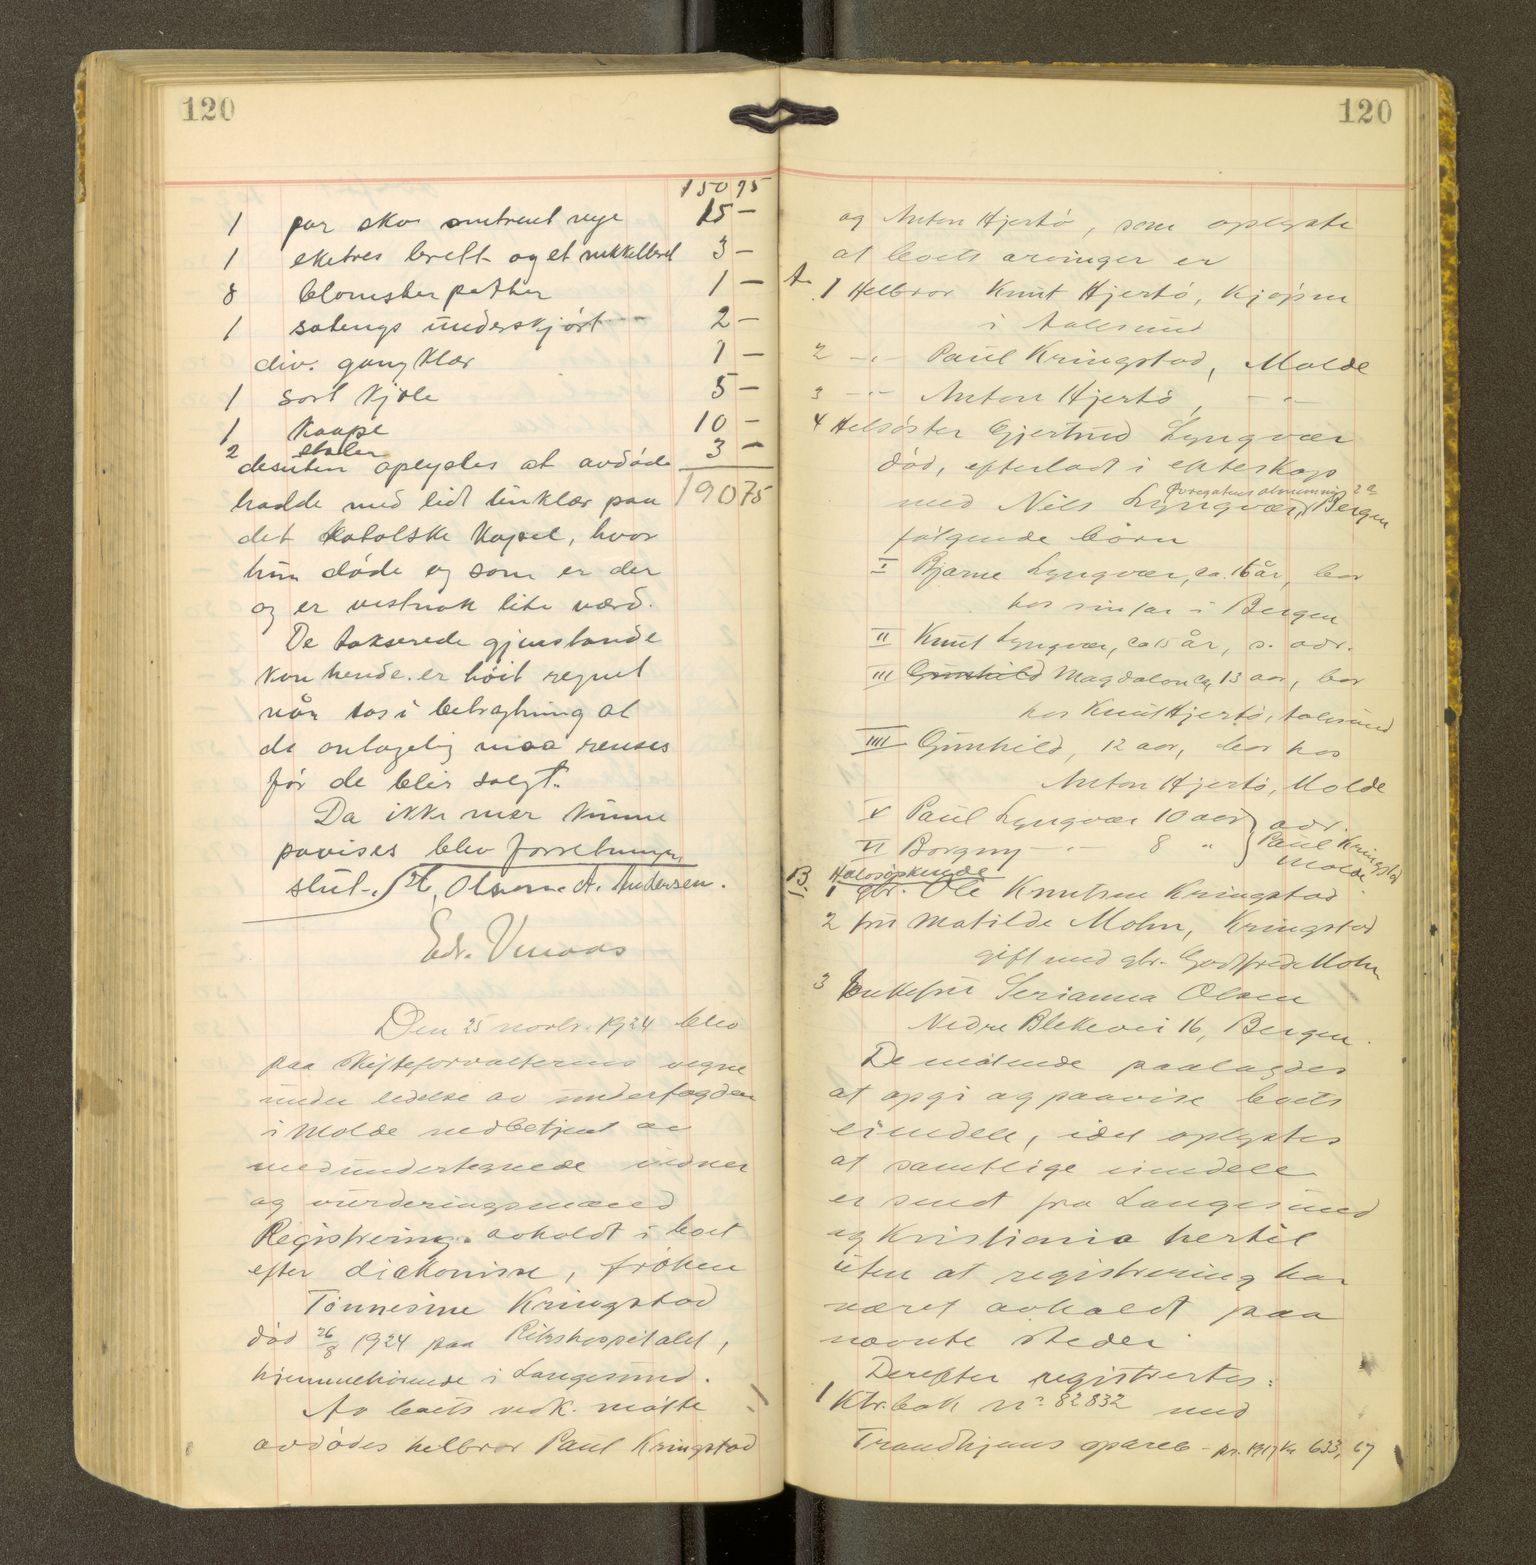 120
150 75
1 par sko omtrent nye 15 —
1 eketres brett og et nikkelbret 3 —
8 blomsterpotter 1 —
1 satengs underskjørt 2 —
div. gang klær 1 —
1 sort kjole 5 —
1 kaape 10 —
2 stoler 3 —
desuten oplystes at avdøde 190 75
hadde med lidt linklær paa
det katolske kapel, hvor
hun døde og som er der
og er vistnok lite værd.
De takserede gjenstande
kan hende er høit regnet
når tas i betragtning at
de antagelig maa renses
før de blir solgt.
Da ikke mer kunne
pavises blev forretningen
slut. Olsen A. Andersen.
Edv.
Den 25 novbr. 1924 blev
paa skifteforvalterens vegne
under ledelse av underfogden
i Molde medbetjent av
medundertegnede vidner
og vurderingsmænd
Registrering avholdt i boet
efter diakonisse, frøken
Tønnesine Kringstad
død 26/8 1924 paa Rikshospitalet,
hjemmehørende i Langesund.
Av boets vedk. møtte
avdødes helbror Paul Kringstad
120
og Anton Hjertø, som oplyste
at boets arvinger er
A. 1 Helbror Knut Hjertø, Kjøpm
i Aalesund
2 —"— Paul Kringstad, Molde
3 —"— Anton Hjertø, —"—
4 Helsøster Gjertrud Lyngvær
død, efterladt i ekteskap
med Nils Lyngvær, Bergen
følgende børn
I Bjarne Lyngvær, ca. 16 år, bor
hos sin far i Bergen
II Knut Lyngvær, ca 15 år, s. adr.
III Gunhild Magdalon ca 13 aar, bor
hos Knut Hjertø, Aalesund
IIII Gunhild, 12 aar, bor hos
Anton Hjertø, Molde
V Paul Lyngvær 10 aar } adr.
VI Borgny —"— 8 " } Paul Kringstad
Molde
B. Halvsøskende
1 gbr. Ole Knutsen Kringstad
2 fru Matilde Mohn, Kringstad
gift med gbr. Godtfred Mohn
3 Enkefru Serianna Olsen
Nedre Blekevei 16, Bergen.
De møtende paalagdes
at opgi og paavise boets
eiendele, idet oplystes
at samtlige eiendele
er sendt fra Langesund
og Kristiania hertil
uten at registrering har
været avholdt paa
nævnte steder.
Derefter registrertes:
1 Ktr.bok nr 82832 med
Trondhjems spareb. — pr. 1917 kr 633,67